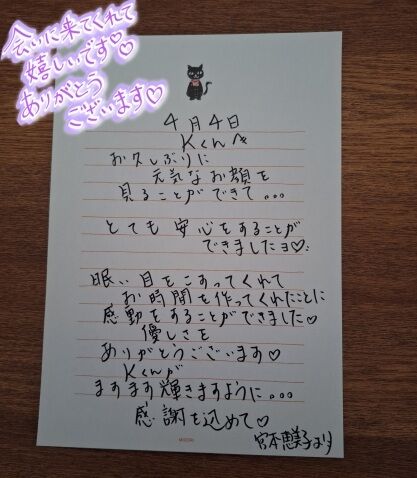 会いに来てくれて
嬉しいです♡♡
ありがとう
ございます♡
4月4日
Kくんへ
お久しぶりに
元気なお顔を
見ることができて...
とても安心をすることが
できましたョ♡
眠い目をこすってくれて
お時間を作ってくれたことに
感動をすることができました♡
優しさを
ありがとうございます♡
Kくんが
ますます輝きますように...
感謝を込めて♡
宮本恵美子より
MIDORI